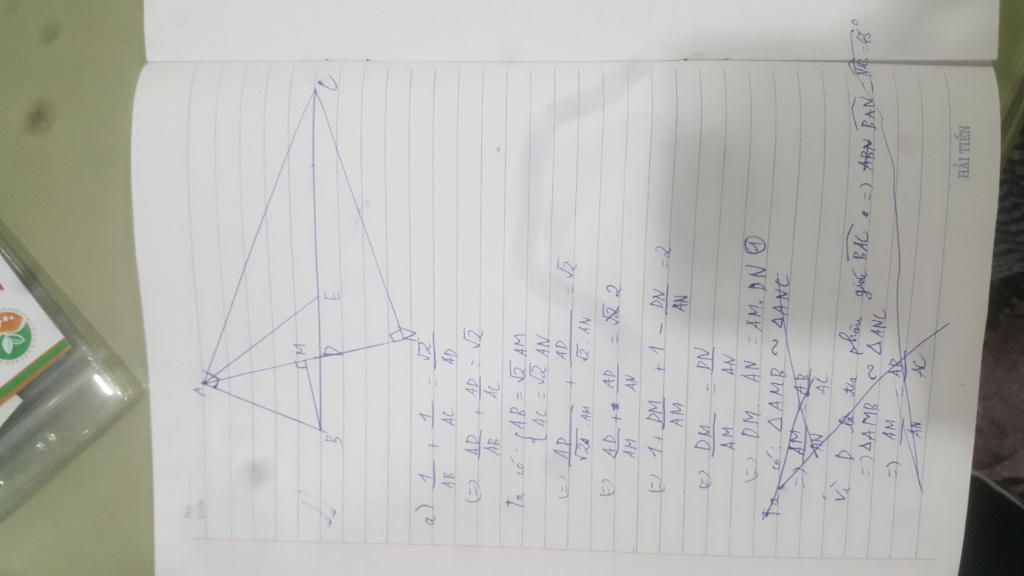 No.
Date
A
B
M
D
E
N
C
a) 1/AB + 1/AC = √2/AD
(=) AD/AB + AD/AC = √2
Ta có: { AB = √2 AM
AC = √2 AN
(=) AD/√2.AM + AD/√2.AN = √2
(=) AD/AM + AD/AN = 2
(=) 1 + DM/AM + 1 - DN/AN = 2
(=) DM/AM = DN/AN
(=) DM. AN = AM. DN ①
Ta có: △AMB ~ △ANC
=) AM/AN = AB/AC
Vì D phân giác BAC =) ABN BAN = 45°
=) △AMB ~ △ANC
=) AM/AN = AB/AC
HẢI TIẾN